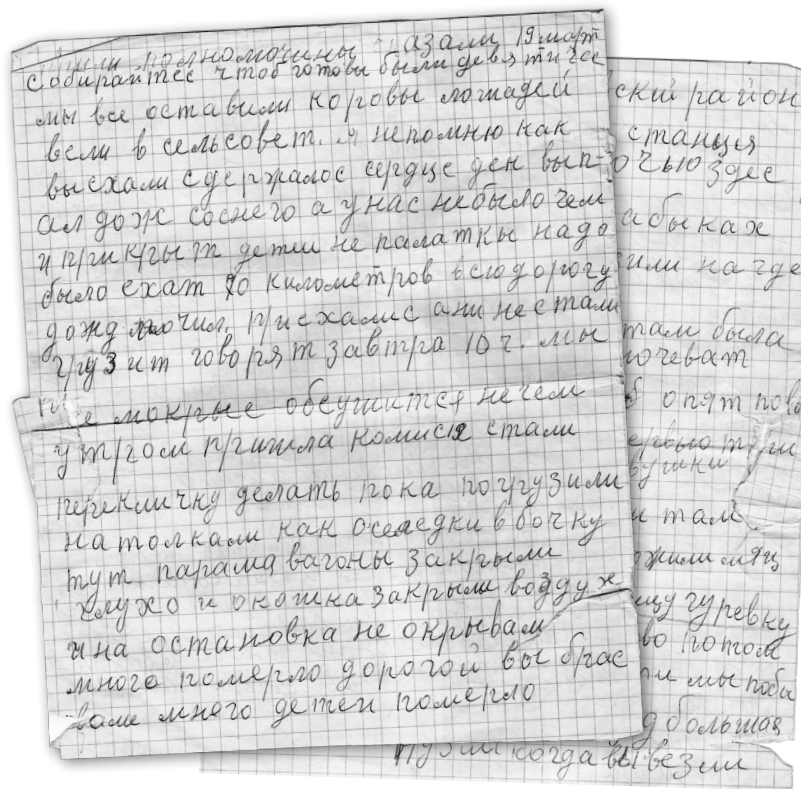 пришли полномочины сказали 19 март
собирайтес чтоб готовы были девятичас
мы все оставили коровы лошадей
вели в сельсовет. я непомню как
выехали сдержалос сердце ден вып-
ал дож соснего а у нас небыло чем
и прикрыт детей не палаткы надо
было ехат 70 километров всю дорогу
дожд мочил. приехалис ани не стали
грузит говорят завтра 10 ч. мы
все мокрые обсушится нечем
утром пришла комися стали
перекличку делать пока погрузили
натолкали как оселедки в бочку
тут парама вагоны закрыли
глухо и окошка закрыли воздух
и на остановка не окрывали
много померло дорогой выбрас
вали много детей померло
ский район
станция
очью здес
абыках
зили на где
там была
ночеват
опят пово
вушки
и там
жили м-яц
ицу гуревку
во потом
ли мы поби
д большая
когда вывезли